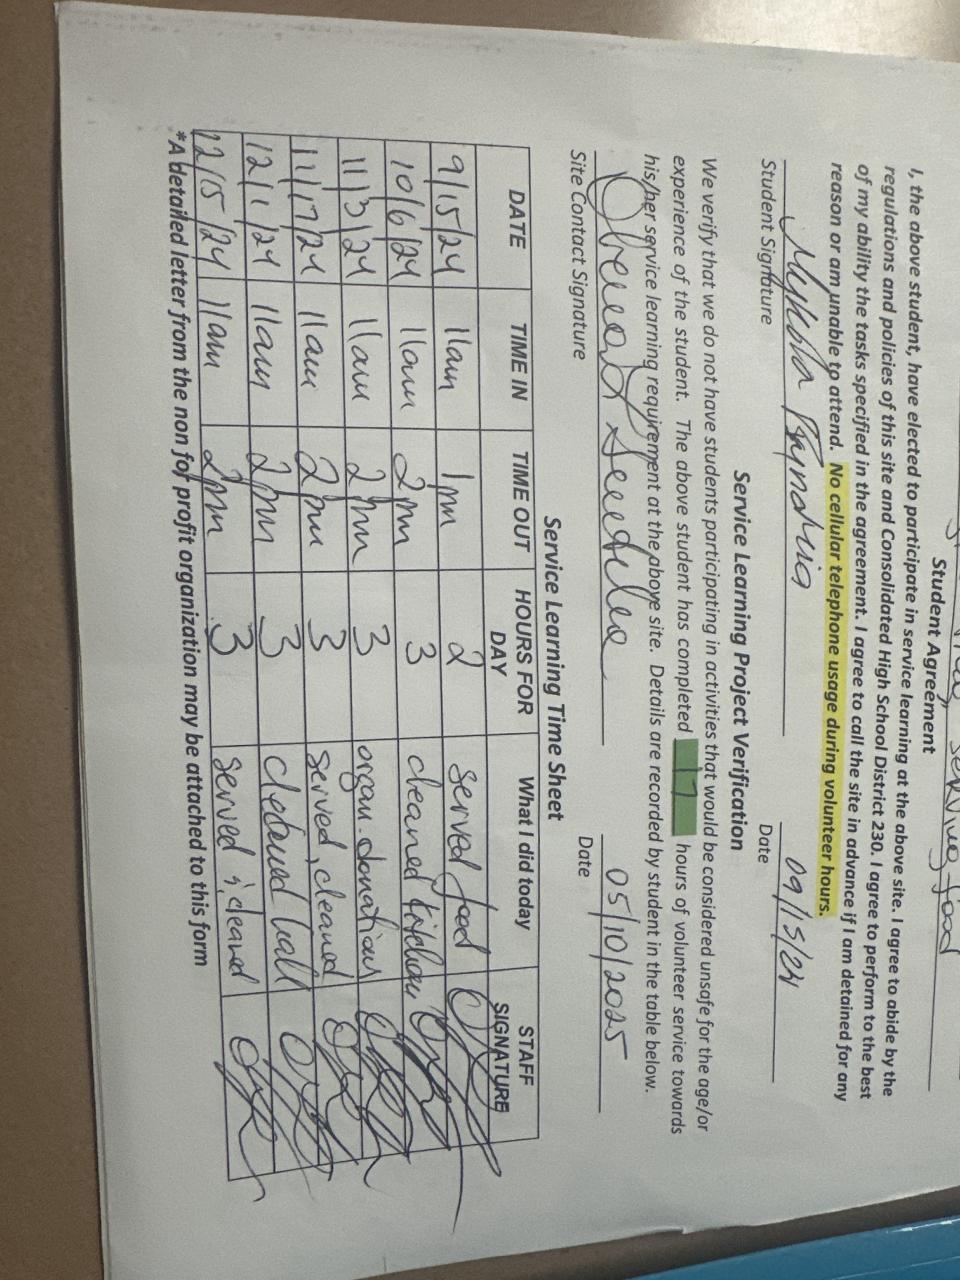 serving food
Student Agreement
I, the above student, have elected to participate in service learning at the above site. I agree to abide by the
regulations and policies of this site and Consolidated High School District 230. I agree to perform to the best
of my ability the tasks specified in the agreement. I agree to call the site in advance if I am detained for any
reason or am unable to attend. No cellular telephone usage during volunteer hours.
09/15/24
Student Signature Date
Service Learning Project Verification
We verify that we do not have students participating in activities that would be considered unsafe for the age/or
experience of the student. The above student has completed 17 hours of volunteer service towards
his/her service learning requirement at the above site. Details are recorded by student in the table below.
05/10/2025
Site Contact Signature Date
Service Learning Time Sheet
DATE TIME IN TIME OUT HOURS FOR DAY What I did today STAFF SIGNATURE
9/15/24 11am 1pm 2 served food
10/6/24 11am 2pm 3 cleaned kitchen
11/3/24 11am 2pm 3 organ. donations
11/17/24 11am 2pm 3 served, cleaned
12/1/24 11am 2pm 3 cleaned hall
12/15/24 11am 2pm 3 served & cleaned
*A detailed letter from the non for profit organization may be attached to this form